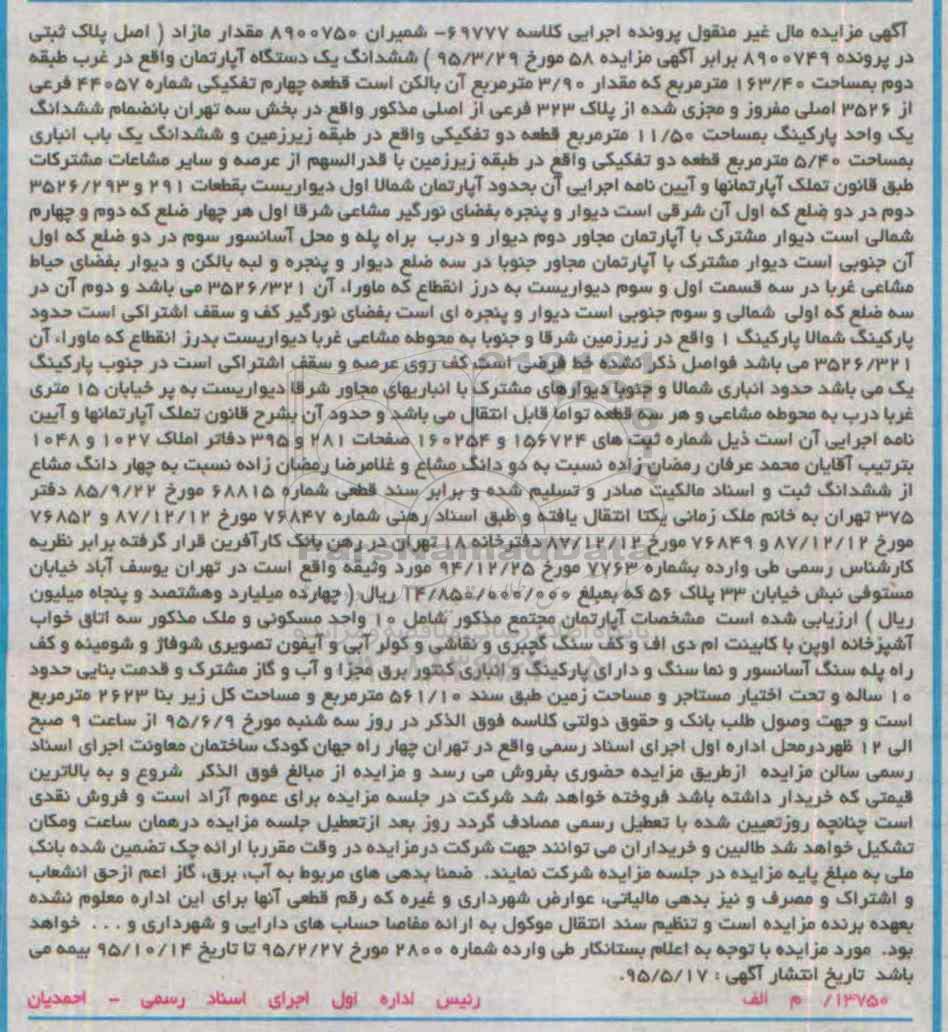 آگهی مزایده مال غیر منقول پرونده اجرایی کلاسه ۶۹۷۷۷- شمیران ۸۹۰۰۷۵۰ مقدار مازاد ( اصل پلاک ثبتی
در پرونده ۸۹۰۰۷۴۹ برابر آگهی مزایده ۵۸ مورخ ۹۵/۳/۲۹ ) ششدانگ یک دستگاه آپارتمان واقع در غرب طبقه
دوم بمساحت ۱۶۳/۴۰ مترمربع که مقدار ۳/۹۰ مترمربع آن بالکن است قطعه چهارم تفکیکی شماره ۴۴۰۵۷ فرعی
از ۳۵۲۶ اصلی مفروز و مجزی شده از پلاک ۳۲۳ فرعی از اصلی مذکور واقع در بخش سه تهران بانضمام ششدانگ
یک واحد پارکینگ بمساحت ۱۱/۵۰ مترمربع قطعه دو تفکیکی واقع در طبقه زیرزمین و ششدانگ یک باب انباری
بمساحت ۵/۴۰ مترمربع قطعه دو تفکیکی واقع در طبقه زیرزمین با قدرالسهم از عرصه و سایر مشاعات مشترکات
طبق قانون تملک آپارتمانها و آیین نامه اجرایی آن بحدود آپارتمان شمالا اول دیواریست بقطعات ۲۹۱ و ۳۵۲۶/۲۹۳
دوم در دو ضلع که اول آن شرقی است دیوار و پنجره بفضای نورگیر مشاعی شرقا اول هر چهار ضلع که دوم و چهارم
شمالی است دیوار مشترک با آپارتمان مجاور دوم دیوار و درب براه پله و محل آسانسور سوم در دو ضلع که اول
آن جنوبی است دیوار مشترک با آپارتمان مجاور جنوبا در سه ضلع دیوار و پنجره و لبه بالکن و دیوار بفضای حیاط
مشاعی غربا در سه قسمت اول و سوم دیواریست به درز انقطاع که ماوراء آن ۳۵۲۶/۳۲۱ می باشد و دوم آن در
سه ضلع که اولی شمالی و سوم جنوبی است دیوار و پنجره ای است بفضای نورگیر کف و سقف اشتراکی است حدود
پارکینگ شمالا پارکینگ ۱ واقع در زیرزمین شرقا و جنوبا به محوطه مشاعی غربا دیواریست بدرز انقطاع که ماوراء آن
۳۵۲۶/۳۲۱ می باشد فواصل ذکر نشده خط فرضی است کف روی عرصه و سقف اشتراکی است در جنوب پارکینگ
یک می باشد حدود انباری شمالا و جنوبا دیوارهای مشترک با انباریهای مجاور شرقا دیواریست به پر خیابان ۱۵ متری
غربا درب به محوطه مشاعی و هر سه قطعه تواما قابل انتقال می باشد و حدود آن بشرح قانون تملک آپارتمانها و آیین
نامه اجرایی آن است ذیل شماره ثبت های ۱۵۶۷۲۴ و ۱۶۰۲۵۴ صفحات ۲۸۱ و ۳۹۵ دفاتر املاک ۱۰۲۷ و ۱۰۴۸
بترتیب آقایان محمد عرفان رمضان زاده نسبت به دو دانگ مشاع و غلامرضا رمضان زاده نسبت به چهار دانگ مشاع
از ششدانگ ثبت و اسناد مالکیت صادر و تسلیم شده و برابر سند قطعی شماره ۶۸۸۱۵ مورخ ۸۵/۹/۲۲ دفتر
۳۷۵ تهران به خانم ملک زمانی یکتا انتقال یافته و طبق اسناد رهنی شماره ۷۶۸۴۷ مورخ ۸۷/۱۲/۱۲ و ۷۶۸۵۲
مورخ ۸۷/۱۲/۱۲ و ۷۶۸۴۹ مورخ ۸۷/۱۲/۱۲ دفترخانه ۱۸ تهران در رهن بانک کارآفرین قرار گرفته برابر نظریه
کارشناس رسمی طی وارده بشماره ۷۷۶۳ مورخ ۹۴/۱۲/۲۵ مورد وثیقه واقع است در تهران یوسف آباد خیابان
مستوفی نبش خیابان ۳۳ پلاک ۵۶ که بمبلغ ۱۴/۸۵۰/۰۰۰/۰۰۰ ریال ( چهارده میلیارد وهشتصد و پنجاه میلیون
ریال ) ارزیابی شده است مشخصات آپارتمان مجتمع مذکور شامل ۱۰ واحد مسکونی و ملک مذکور سه اتاق خواب
آشپزخانه اوپن با کابینت ام دی اف و کف سنگ گچبری و نقاشی و کولر آبی و آیفون تصویری شوفاژ و شومینه و کف
راه پله سنگ آسانسور و نما سنگ و دارای پارکینگ و انباری کنتور برق مجزا و آب و گاز مشترک و قدمت بنایی حدود
۱۰ ساله و تحت اختیار مستاجر و مساحت زمین طبق سند ۵۶۱/۱۰ مترمربع و مساحت کل زیر بنا ۲۶۲۳ مترمربع
است و جهت وصول طلب بانک و حقوق دولتی کلاسه فوق الذکر در روز سه شنبه مورخ ۹۵/۶/۹ از ساعت ۹ صبح
الی ۱۲ ظهردرمحل اداره اول اجرای اسناد رسمی واقع در تهران چهار راه جهان کودک ساختمان معاونت اجرای اسناد
رسمی سالن مزایده ازطریق مزایده حضوری بفروش می رسد و مزایده از مبالغ فوق الذکر شروع و به بالاترین
قیمتی که خریدار داشته باشد فروخته خواهد شد شرکت در جلسه مزایده برای عموم آزاد است و فروش نقدی
است چنانچه روزتعیین شده با تعطیل رسمی مصادف گردد روز بعد ازتعطیل جلسه مزایده درهمان ساعت ومکان
تشکیل خواهد شد طالبین و خریداران می توانند جهت شرکت درمزایده در وقت مقرربا ارائه چک تضمین شده بانک
ملی به مبلغ پایه مزایده در جلسه مزایده شرکت نمایند. ضمنا بدهی های مربوط به آب، برق، گاز اعم ازحق انشعاب
و اشتراک و مصرف و نیز بدهی مالیاتی، عوارض شهرداری و غیره که رقم قطعی آنها برای این اداره معلوم نشده
بعهده برنده مزایده است و تنظیم سند انتقال موکول به ارائه مفاصا حساب های دارایی و شهرداری و ... خواهد
بود. مورد مزایده با توجه به اعلام بستانکار طی وارده شماره ۲۸۰۰ مورخ ۹۵/۲/۲۷ تا تاریخ ۹۵/۱۰/۱۴ بیمه می
باشد تاریخ انتشار آگهی : ۹۵/۵/۱۷.
۱۳۷۵۰/ م الف رئیس اداره اول اجرای اسناد رسمی - احمدیان
ParsNamadData